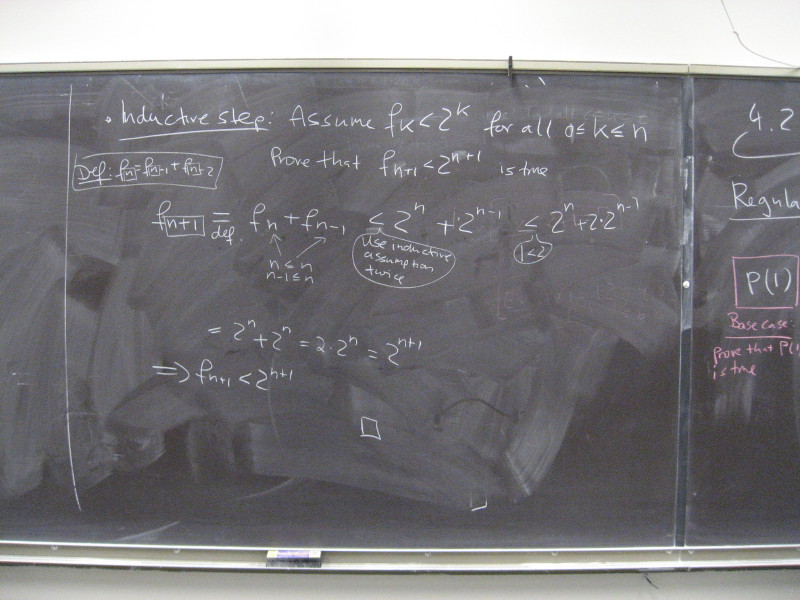 • Inductive step: Assume fₖ < 2ᵏ for all 0 ≤ k ≤ n
Def: fₙ = fₙ₋₁ + fₙ₋₂
Prove that fₙ₊₁ < 2ⁿ⁺¹ is true
fₙ₊₁ = fₙ + fₙ₋₁ ≤ 2ⁿ + 2ⁿ⁻¹ ≤ 2ⁿ + 2·2ⁿ⁻¹
def.
n ≤ n
n-1 ≤ n
Use inductive
assumption
twice
1<2
= 2ⁿ + 2ⁿ = 2·2ⁿ = 2ⁿ⁺¹
⇒ fₙ₊₁ < 2ⁿ⁺¹
□
4.2
Regula
P(1)
Base case:
Prove that P(1
is true